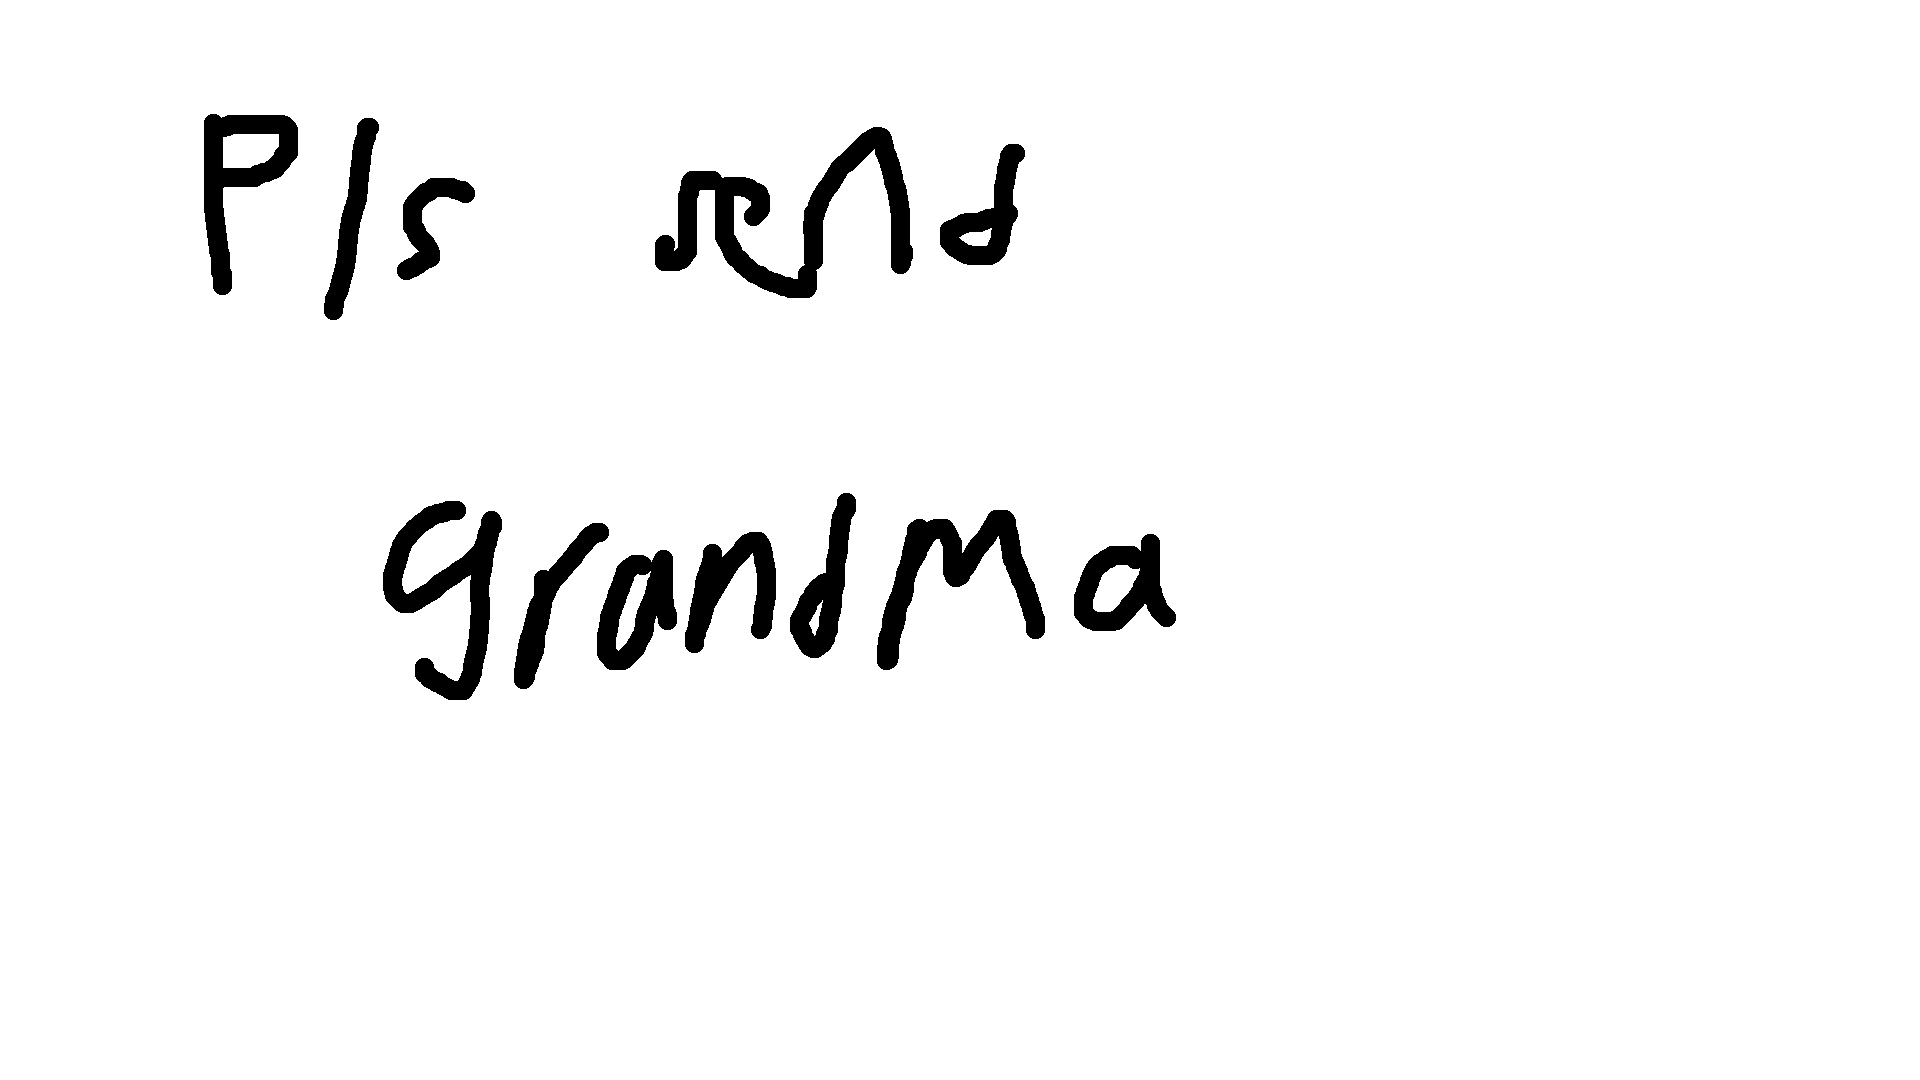 Pls send
grandma